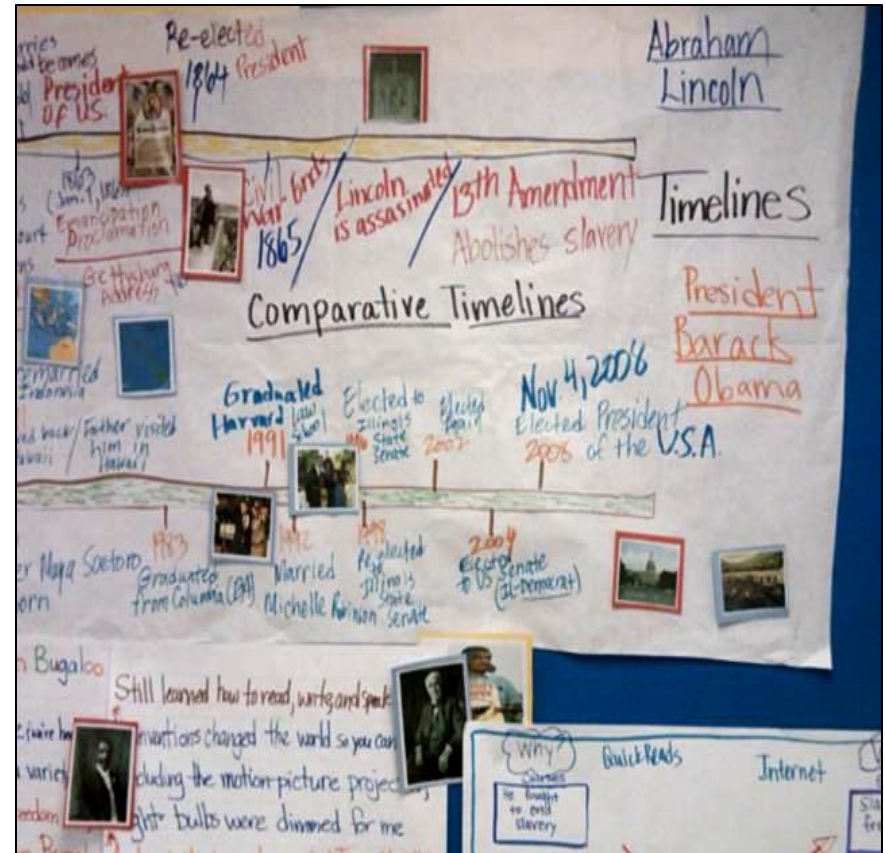 Re-elected
1864 President
becomes
President
of US.
Abraham
Lincoln
1863
(Jan. 1, 1863
Emancipation
Proclamation
Gettysburg
Address
Civil
War Ends
1865
Lincoln
is assasinated
13th Amendment
Abolishes slavery
Timelines
Comparative Timelines
President
Barack
Obama
remarried
Indonesia
back
Father visited
him in
Hawaii
Graduated
Harvard Law
School
1991
Elected to
Illinois
State
Senate
Elected
Again
2002
Nov. 4, 2008
Elected President
2008 of the U.S.A.
Maya Soetoro
orn
1983
Graduated
from Columbia (BA)
1992
Married
Michelle Robinson
1998
Re-elected
Illinois
State
Senate
2004
Elected
to US Senate
(IL-Democrat)
Bugaloo
Still learned how to read, write, and speak
nventions changed the world so you can
a variet
cluding the motion picture projec
edom
ght bulbs were dimmed for me
Why?
QuickReads
Internet
He fought
to end
slavery